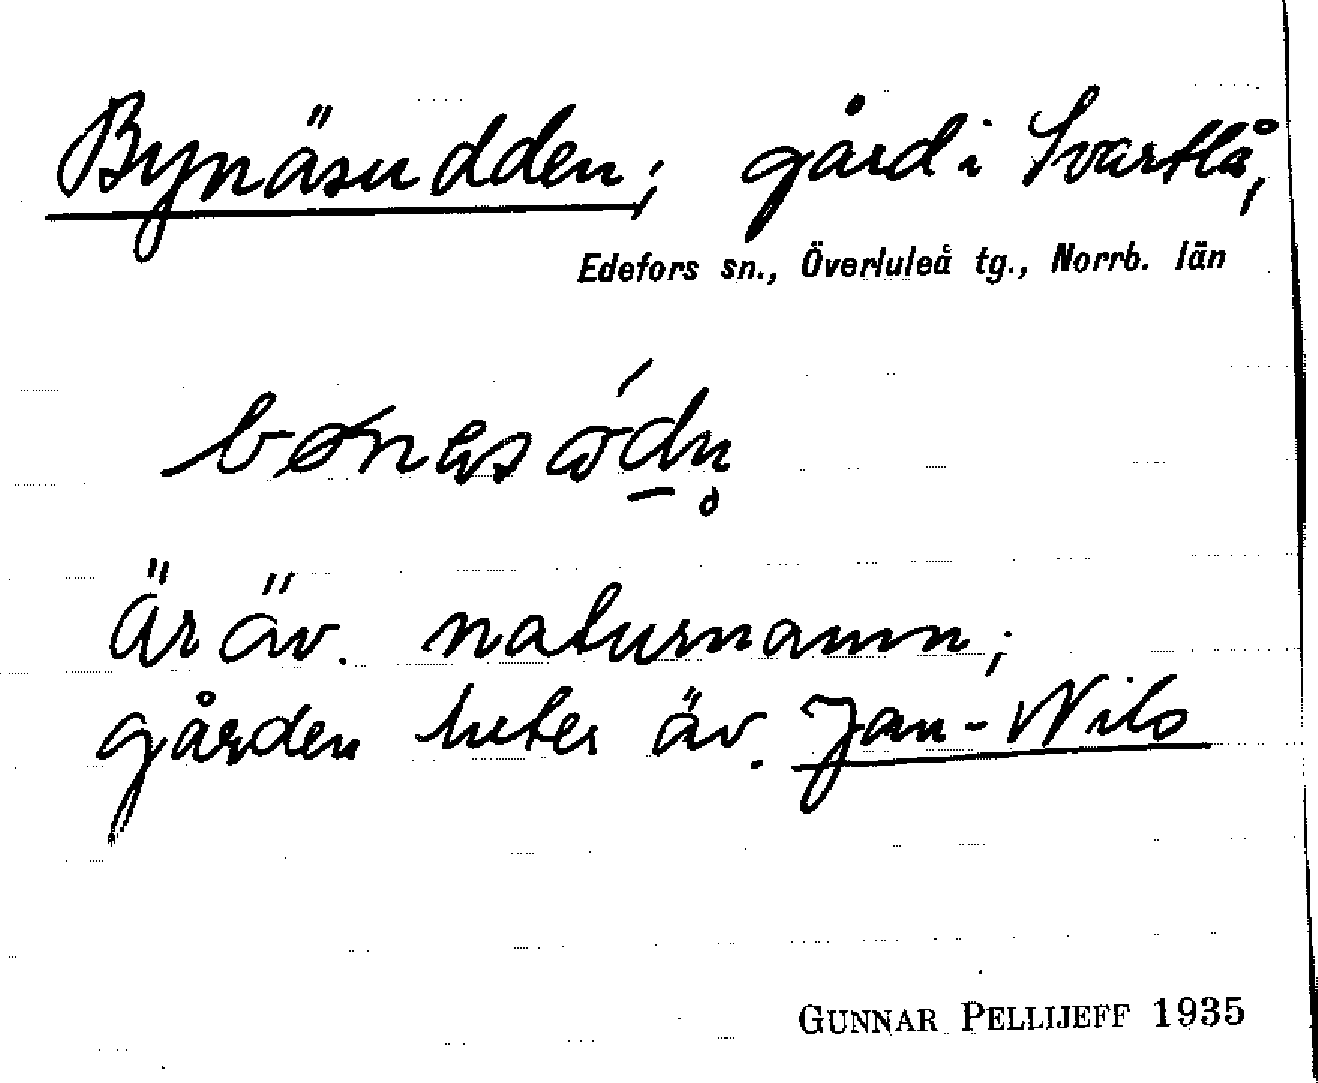 Bynäsudden; gård i Svartlå,
Edefors sn., Överluleå tg., Norrb. län
Är äv. naturnamn;
gården heter äv. Jan-Nils
GUNNAR PELLIJEFF 1935